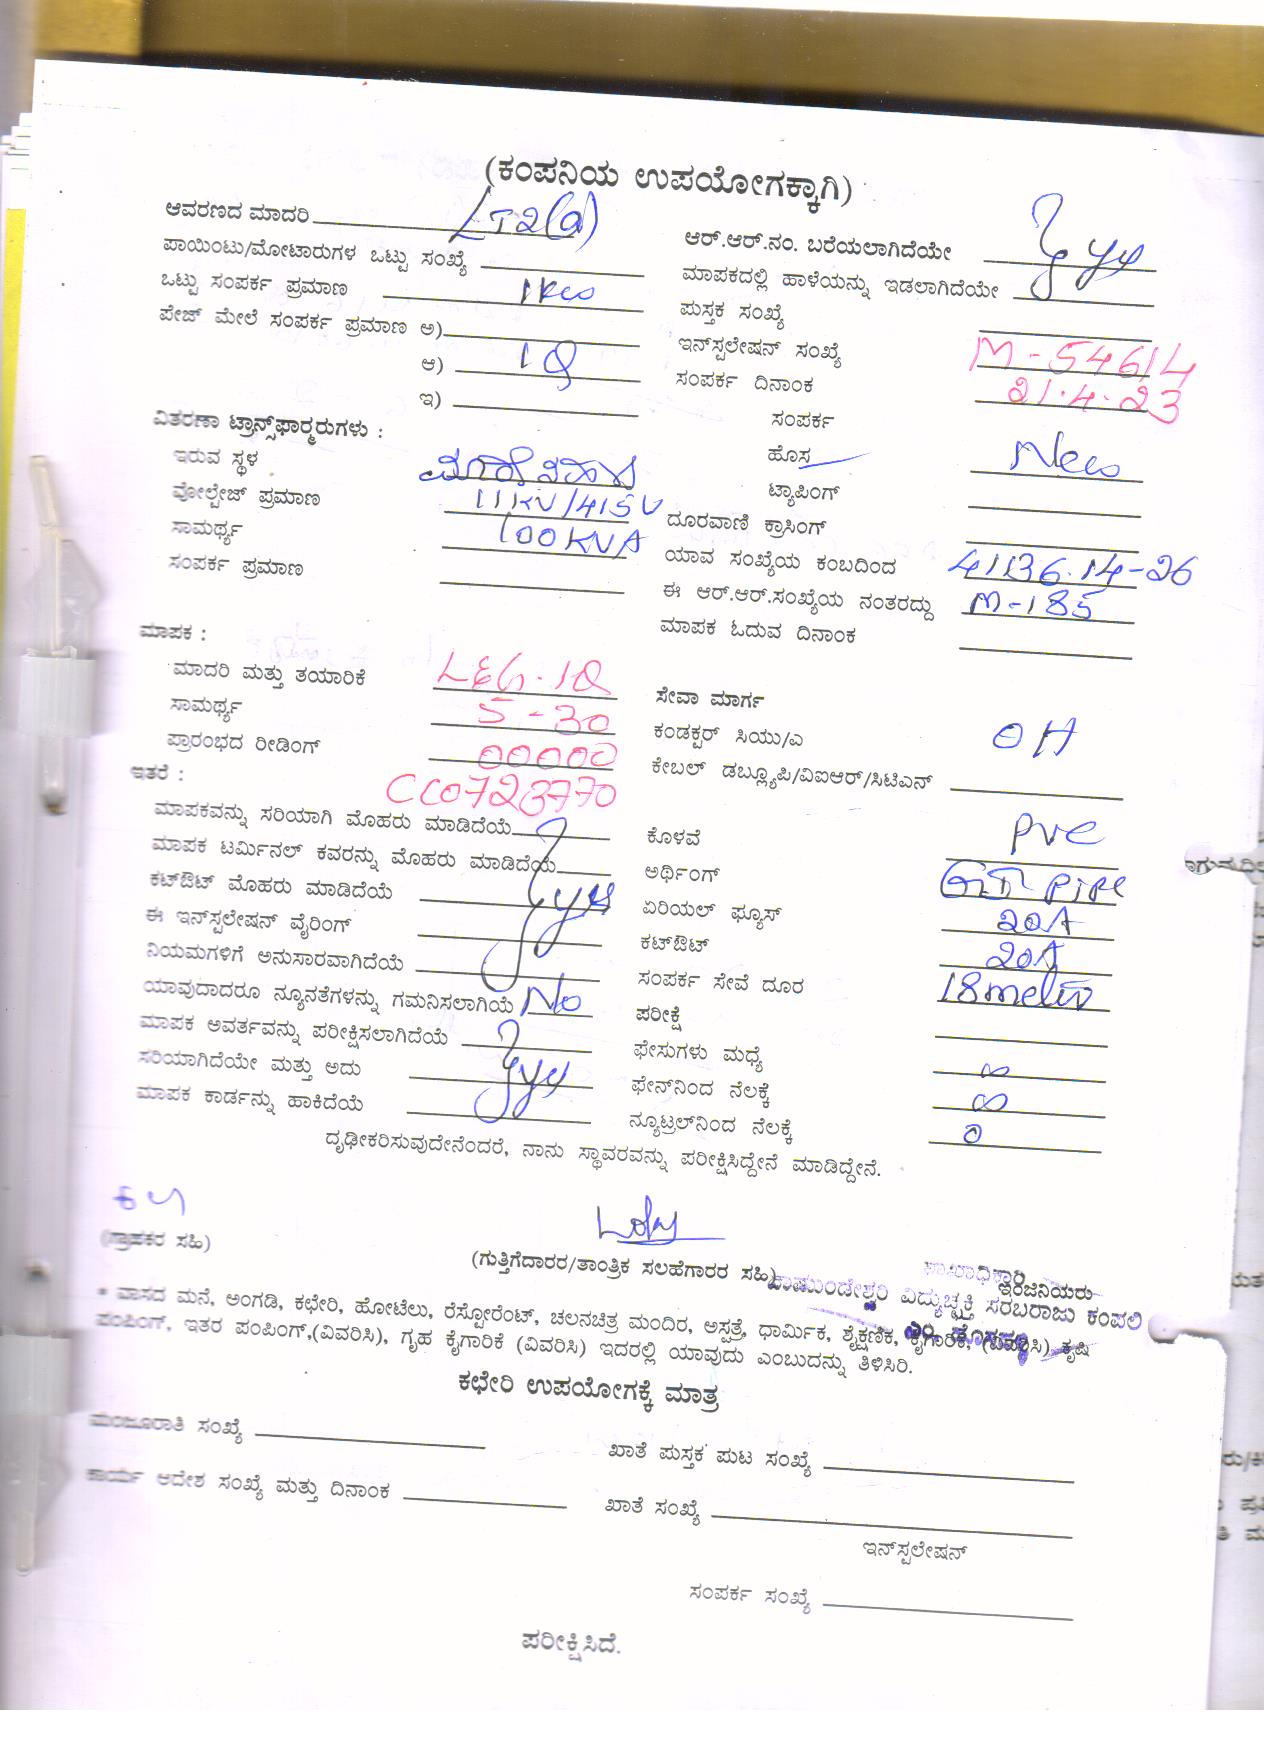 (ಕಂಪನಿಯ ಉಪಯೋಗಕ್ಕಾಗಿ)
ಆವರಣದ ಮಾದರಿ LT2(a)
ಪಾಯಿಂಟು/ಮೋಟಾರುಗಳ ಒಟ್ಟು ಸಂಖ್ಯೆ
ಒಟ್ಟು ಸಂಪರ್ಕ ಪ್ರಮಾಣ 1kw
ಪೇಜ್ ಮೇಲೆ ಸಂಪರ್ಕ ಪ್ರಮಾಣ ಅ)
ಆ)
ಇ)
ವಿತರಣಾ ಟ್ರಾನ್ಸ್‌ಫಾರ್ಮರುಗಳು :
ಇರುವ ಸ್ಥಳ
ವೋಲ್ಟೇಜ್ ಪ್ರಮಾಣ 11KV/415V
ಸಾಮರ್ಥ್ಯ 100KVA
ಸಂಪರ್ಕ ಪ್ರಮಾಣ
ಮಾಪಕ :
ಮಾದರಿ ಮತ್ತು ತಯಾರಿಕೆ
ಸಾಮರ್ಥ್ಯ 5-30
ಪ್ರಾರಂಭದ ರೀಡಿಂಗ್ 00000
ಇತರೆ :
ಮಾಪಕವನ್ನು ಸರಿಯಾಗಿ ಮೊಹರು ಮಾಡಿದೆಯೆ
ಮಾಪಕ ಟರ್ಮಿನಲ್ ಕವರನ್ನು ಮೊಹರು ಮಾಡಿದೆಯೆ
ಕಟ್‌ಔಟ್ ಮೊಹರು ಮಾಡಿದೆಯೆ
ಈ ಇನ್‌ಸ್ಪಲೇಷನ್ ವೈರಿಂಗ್
ನಿಯಮಗಳಿಗೆ ಅನುಸಾರವಾಗಿದೆಯೆ
ಯಾವುದಾದರೂ ನ್ಯೂನತೆಗಳನ್ನು ಗಮನಿಸಲಾಗಿಯೆ No
ಮಾಪಕ ಅವರ್ತವನ್ನು ಪರೀಕ್ಷಿಸಲಾಗಿದೆಯೆ
ಸರಿಯಾಗಿದೆಯೇ ಮತ್ತು ಅದು
ಮಾಪಕ ಕಾರ್ಡನ್ನು ಹಾಕಿದೆಯೆ
ಆರ್.ಆರ್.ನಂ. ಬರೆಯಲಾಗಿದೆಯೇ
ಮಾಪಕದಲ್ಲಿ ಹಾಳೆಯನ್ನು ಇಡಲಾಗಿದೆಯೇ
ಪುಸ್ತಕ ಸಂಖ್ಯೆ
ಇನ್‌ಸ್ಪಲೇಷನ್ ಸಂಖ್ಯೆ M-54614
ಸಂಪರ್ಕ ದಿನಾಂಕ 21.4.23
ಸಂಪರ್ಕ
ಹೊಸ New
ಟ್ಯಾಪಿಂಗ್
ದೂರವಾಣಿ ಕ್ರಾಸಿಂಗ್
ಯಾವ ಸಂಖ್ಯೆಯ ಕಂಬದಿಂದ 41136.14-26
ಈ ಆರ್.ಆರ್.ಸಂಖ್ಯೆಯ ನಂತರದ್ದು M-185
ಮಾಪಕ ಓದುವ ದಿನಾಂಕ
ಸೇವಾ ಮಾರ್ಗ
ಕಂಡಕ್ಟರ್ ಸಿಯು/ಎ OH
ಕೇಬಲ್ ಡಬ್ಲ್ಯೂಪಿ/ವಿಐಆರ್/ಸಿಟಿಎನ್
ಕೊಳವೆ PVC
ಅರ್ಥಿಂಗ್ GI Pipe
ಏರಿಯಲ್ ಫ್ಯೂಸ್ 20A
ಕಟ್‌ಔಟ್ 20A
ಸಂಪರ್ಕ ಸೇವೆ ದೂರ 18meter
ಪರೀಕ್ಷೆ
ಫೇಸುಗಳು ಮಧ್ಯೆ ∞
ಫೇಸ್‌ನಿಂದ ನೆಲಕ್ಕೆ ∞
ನ್ಯೂಟ್ರಲ್‌ನಿಂದ ನೆಲಕ್ಕೆ 0
ದೃಢೀಕರಿಸುವುದೇನೆಂದರೆ, ನಾನು ಸ್ಥಾವರವನ್ನು ಪರೀಕ್ಷಿಸಿದ್ದೇನೆ ಮಾಡಿದ್ದೇನೆ.
(ಗ್ರಾಹಕರ ಸಹಿ)
(ಗುತ್ತಿಗೆದಾರರ/ತಾಂತ್ರಿಕ ಸಲಹೆಗಾರರ ಸಹಿ)
ಇಂಜಿನಿಯರು
ಚಾಮುಂಡೇಶ್ವರಿ ವಿದ್ಯುಚ್ಛಕ್ತಿ ಸರಬರಾಜು ಕಂಪನಿ
* ವಾಸದ ಮನೆ, ಅಂಗಡಿ, ಕಛೇರಿ, ಹೋಟೆಲು, ರೆಸ್ಟೋರೆಂಟ್, ಚಲನಚಿತ್ರ ಮಂದಿರ, ಅಸ್ಪತ್ರೆ, ಧಾರ್ಮಿಕ, ಶೈಕ್ಷಣಿಕ, ಕೈಗಾರಿಕೆ, (ವಿವರಿಸಿ) ಕೃಷಿ
ಪಂಪಿಂಗ್, ಇತರ ಪಂಪಿಂಗ್,(ವಿವರಿಸಿ), ಗೃಹ ಕೈಗಾರಿಕೆ (ವಿವರಿಸಿ) ಇದರಲ್ಲಿ ಯಾವುದು ಎಂಬುದನ್ನು ತಿಳಿಸಿರಿ.
ಕಛೇರಿ ಉಪಯೋಗಕ್ಕೆ ಮಾತ್ರ
ಮಂಜೂರಾತಿ ಸಂಖ್ಯೆ
ಖಾತೆ ಪುಸ್ತಕ ಪುಟ ಸಂಖ್ಯೆ
ಕಾರ್ಯ ಆದೇಶ ಸಂಖ್ಯೆ ಮತ್ತು ದಿನಾಂಕ
ಖಾತೆ ಸಂಖ್ಯೆ
ಇನ್‌ಸ್ಪಲೇಷನ್
ಸಂಪರ್ಕ ಸಂಖ್ಯೆ
ಪರೀಕ್ಷಿಸಿದೆ.